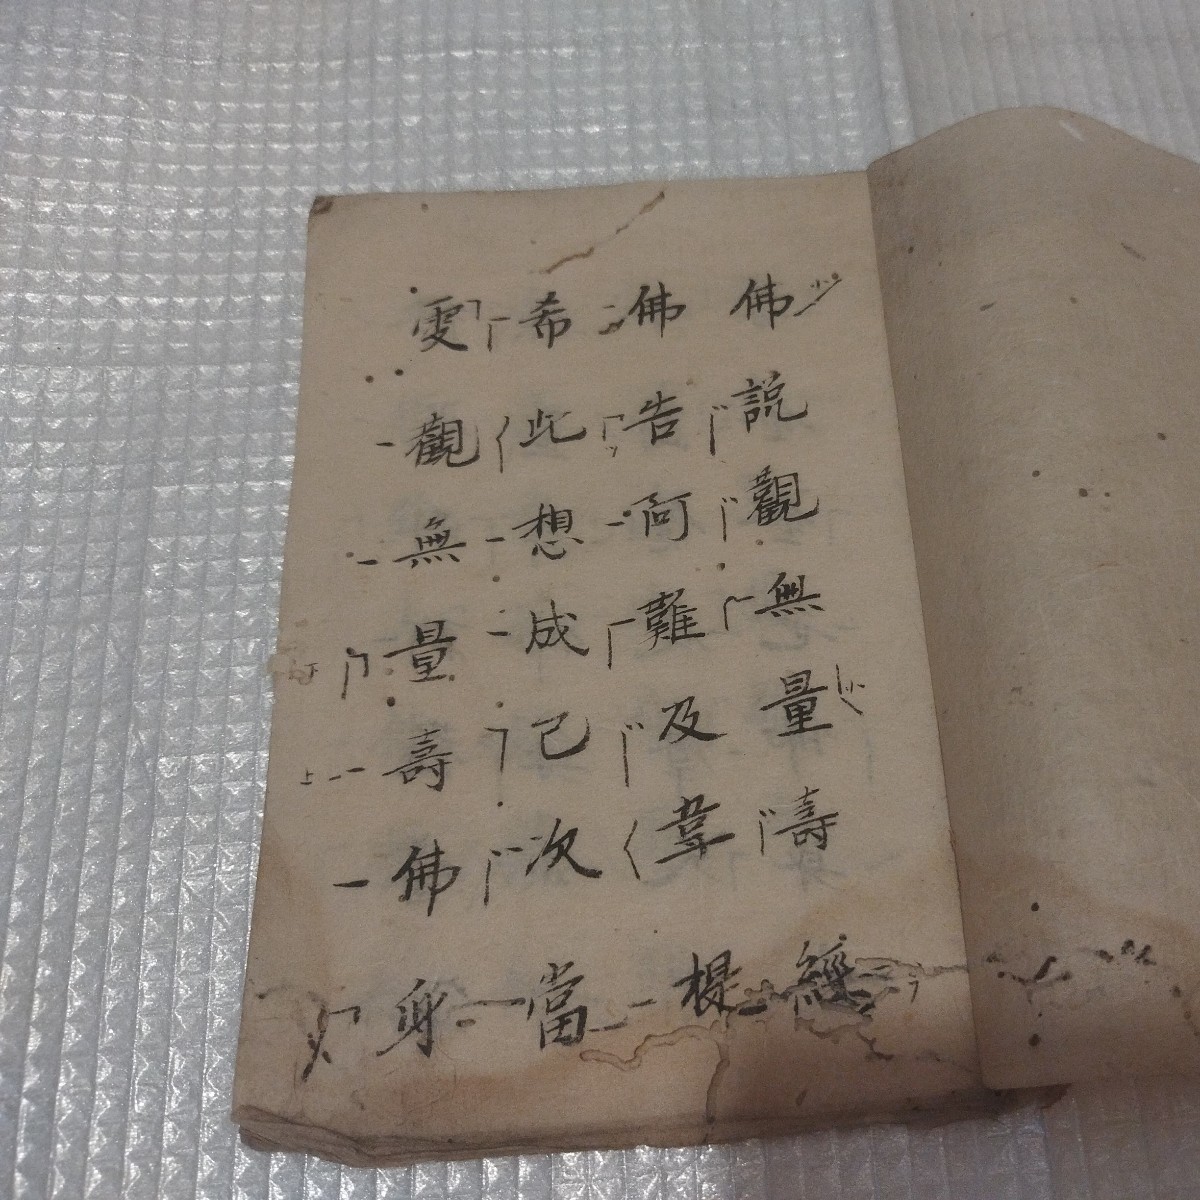 佛説觀無量壽經
佛告阿難及韋提
希此想成已次當
更觀無量壽佛身